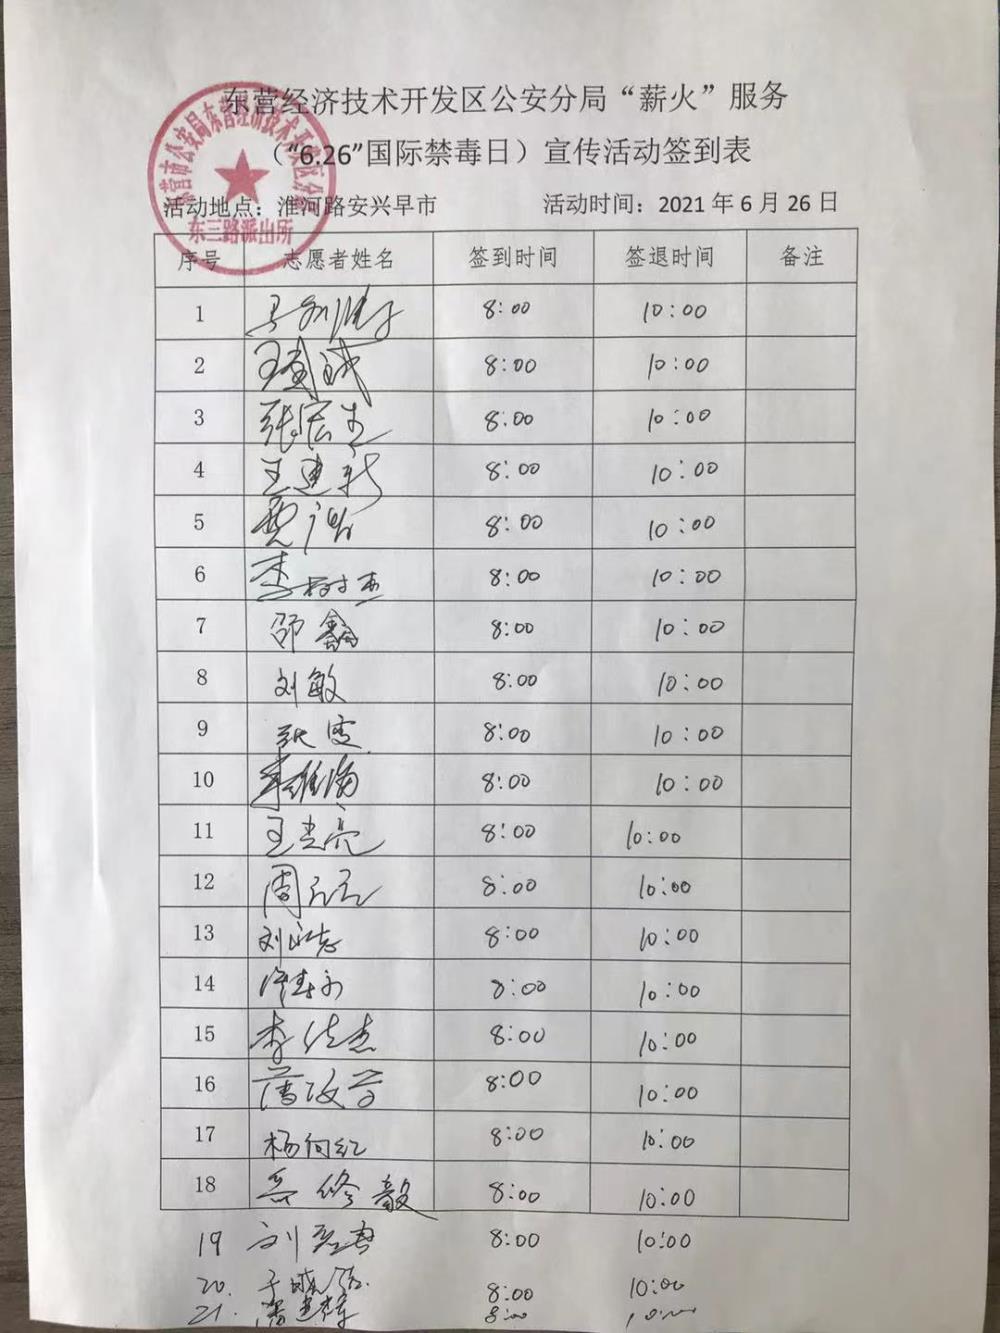 东营经济技术开发区公安分局“薪火”服务
（“6.26”国际禁毒日）宣传活动签到表
东营市公安局东营经济技术开发区分局
东三路派出所
活动地点：淮河路安兴早市 活动时间：2021 年 6 月 26 日
序号 志愿者姓名 签到时间 签退时间 备注
1 8:00 10:00
2 8:00 10:00
3 张宏 8:00 10:00
4 王建新 8:00 10:00
5 8:00 10:00
6 李树杰 8:00 10:00
7 邵鑫 8:00 10:00
8 刘敏 8:00 10:00
9 张雯 8:00 10:00
10 8:00 10:00
11 王光亮 8:00 10:00
12 周 8:00 10:00
13 刘 志 8:00 10:00
14 8:00 10:00
15 李佳杰 8:00 10:00
16 8:00 10:00
17 杨向红 8:00 10:00
18 修毅 8:00 10:00
19 刘 8:00 10:00
20. 8:00 10:00
21. 8:00